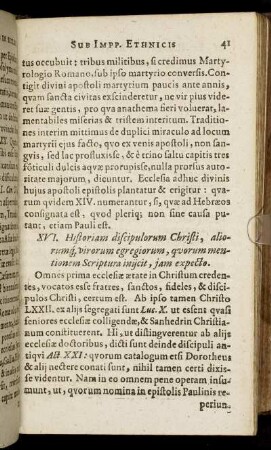 SUB IMPP. ETHNICIS 41
tus occubuit: tribus militibus, si credimus Marty-
rologio Romano, sub ipso martyrio conversis. Con-
tigit divini apostoli martyrium paucis ante annis,
quam sancta civitas exscinderetur, ne vir pius vide-
ret suæ gentis, pro qva anathema fieri voluerat, la-
mentabiles miserias & tristem interitum. Traditio-
nes interim mittimus de duplici miraculo ad locum
martyrii ejus facto, qvo ex venis apostoli, non san-
gvis, sed lac profluxisse, & è trino saltu capitis tres
fōticuli dulcis aqvæ prorupisse, nulla prorsus auto-
ritate majorum, dicuntur. Ecclesia adhuc divinis
hujus apostoli epistolis plantatur & erigitur: qva-
rum qvidem XIV. numerantur, si, qvæ ad Hebræos
consignata est, qvod pleriq; non sine causa pu-
tant, etiam Pauli est.
XVI. Historiam discipulorum Christi, alio-
rumq́, virorum egregiorum, qvorum men-
tionem Scriptura injicit, jam expecto.
Omnes prima ecclesiæ ætate in Christum creden-
tes, vocatos esse fratres, sanctos, fideles, & disci-
pulos Christi, certum est. Ab ipso tamen Christo
LXXII. ex alijs segregati sunt Luc. X. ut essent qvasi
seniores ecclesiæ colligendæ, & Sanhedrin Christia-
num constituerent. Hi, ut distingverentur ab alijs
ecclesiæ doctoribus, dicti sunt deinde discipuli an-
tiqvi Act. XXI: qvorum catalogum etsi Dorotheus
& alij nectere conati sunt, nihil tamen certi dixis-
se videntur. Nam in eo omnem pene operam insu-
munt, ut, qvorum nomina in epistolis Paulinis re-
periun-